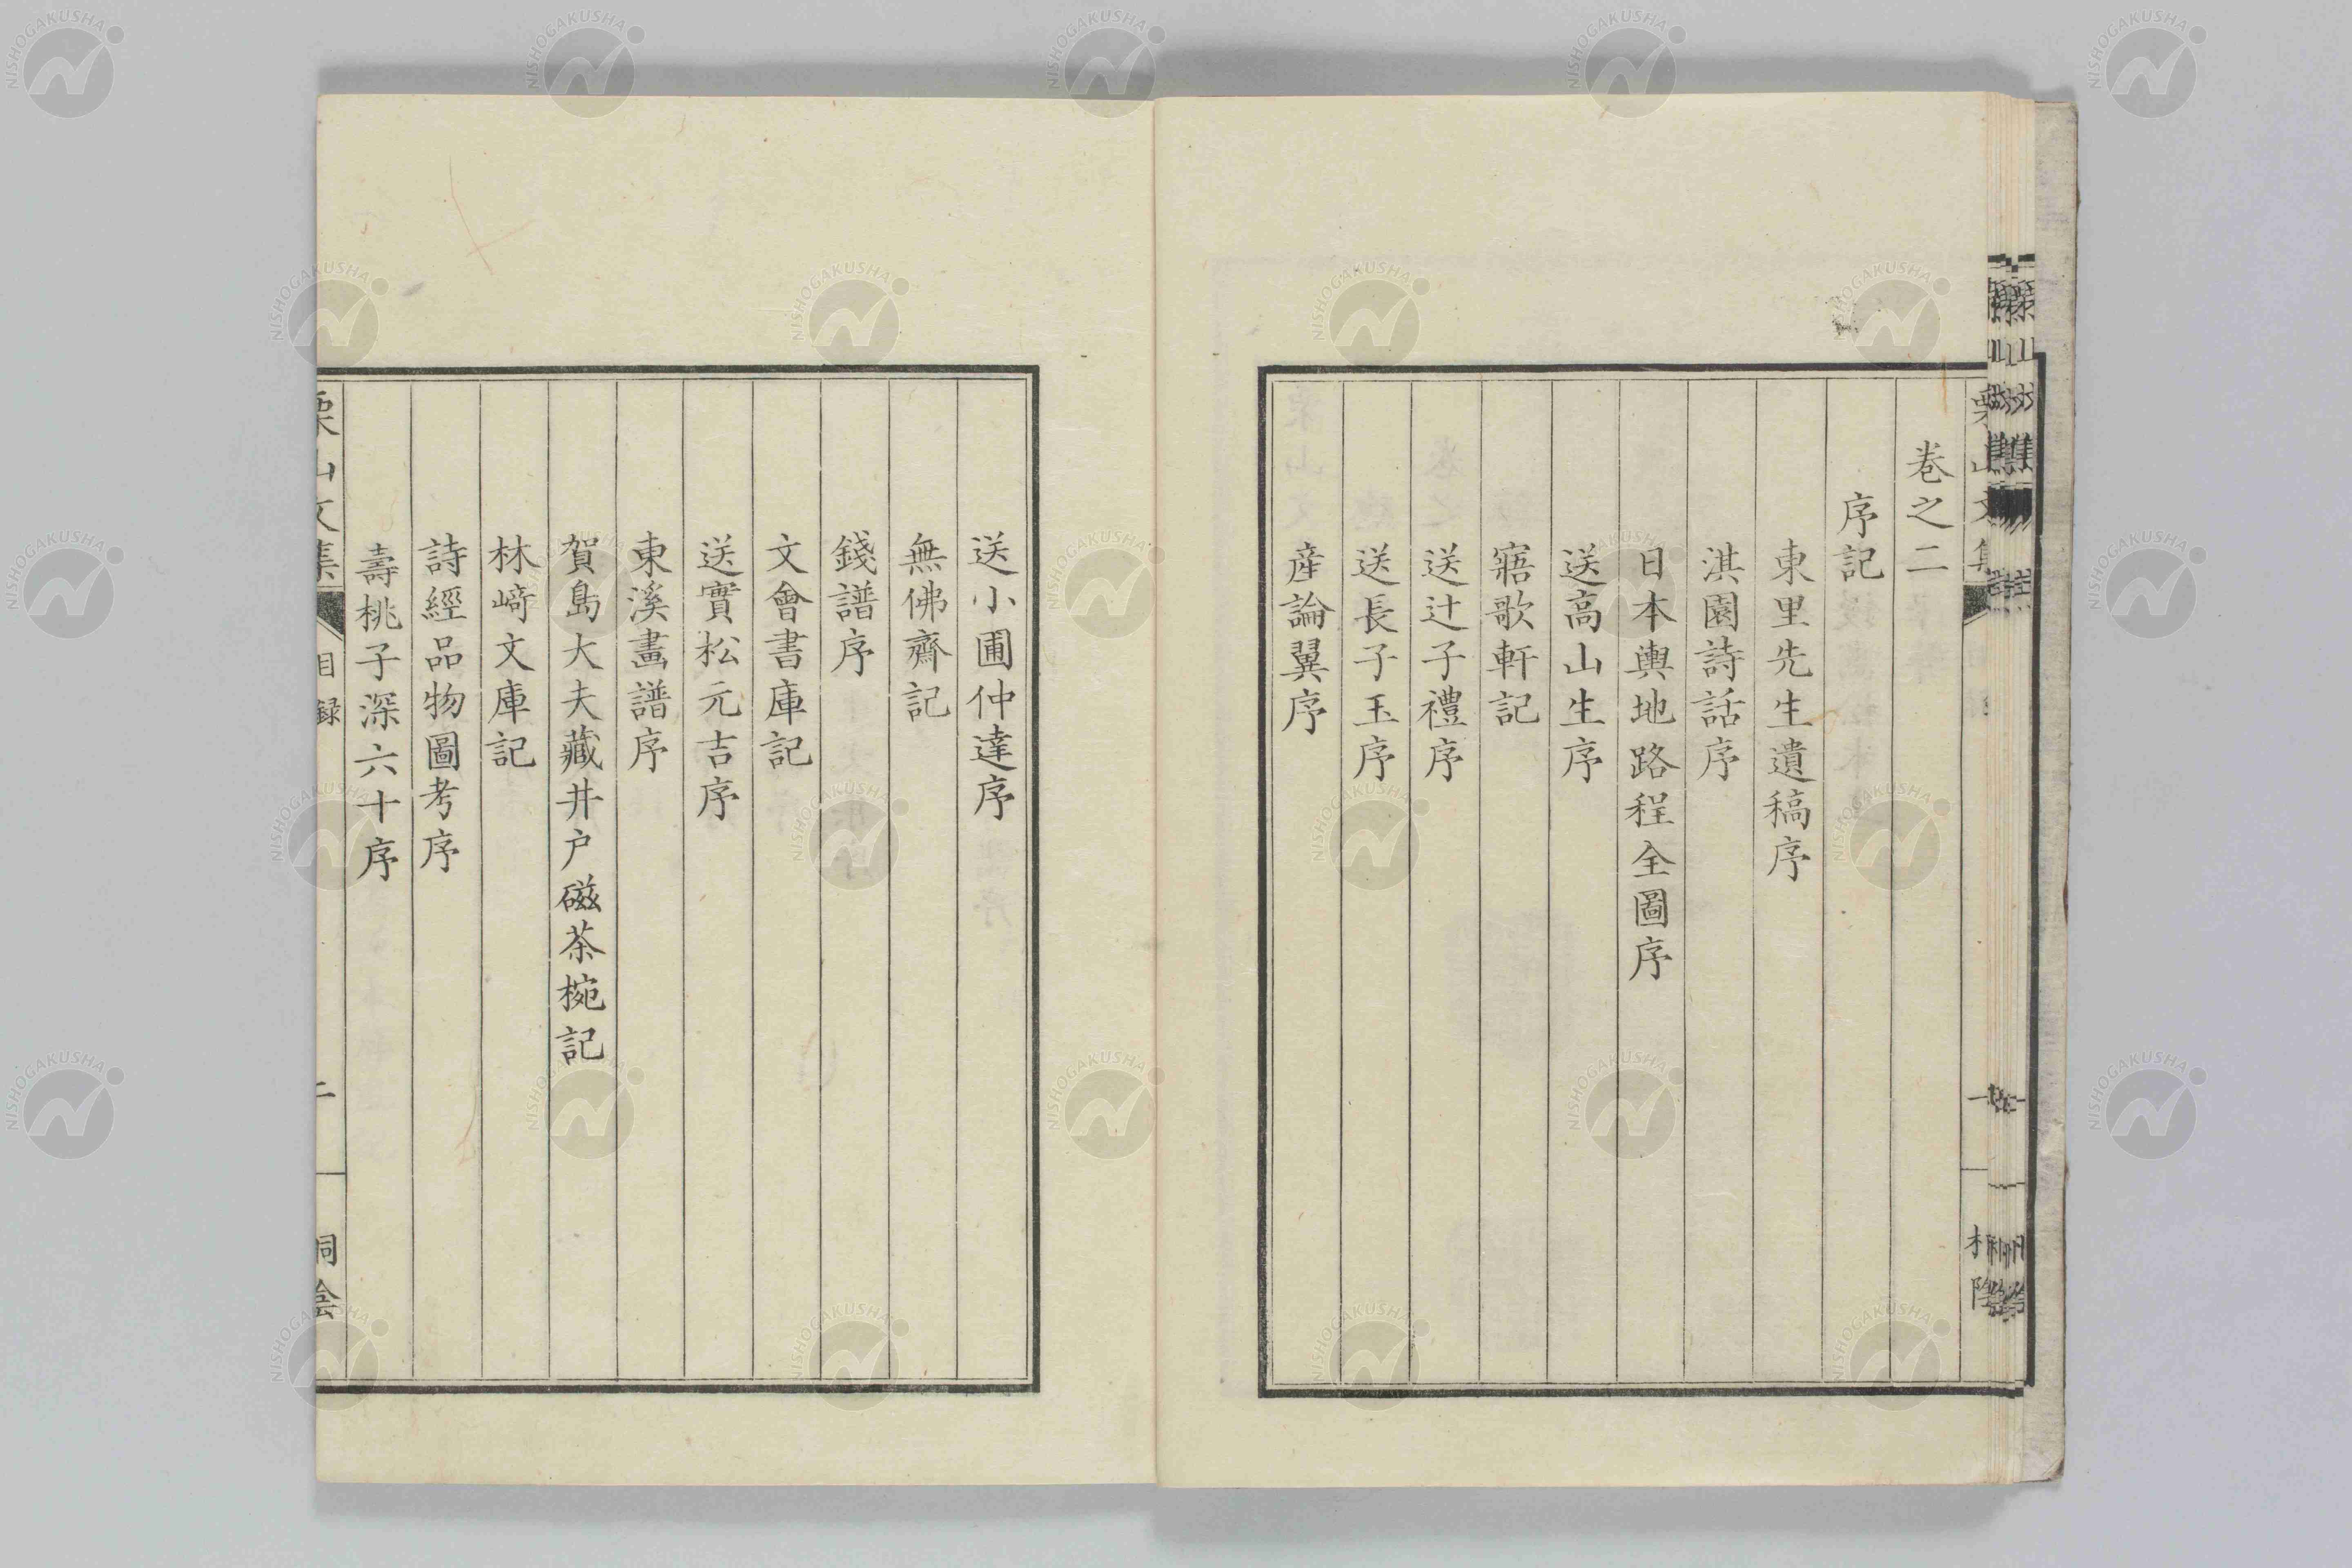 卷之二
序記
東里先生遺稿序
淇園詩話序
日本輿地路程全圖序
送高山生序
寤歌軒記
送辻子禮序
送長子玉序
産論翼序
送小圃仲達序
無佛齋記
錢譜序
文會書庫記
送實松元吉序
東溪畵譜序
賀島大夫藏井户磁茶椀記
林﨑文庫記
詩經品物圖考序
壽桃子深六十序
栗山文集 目錄 二 桐陰
NISHOGAKUSHA